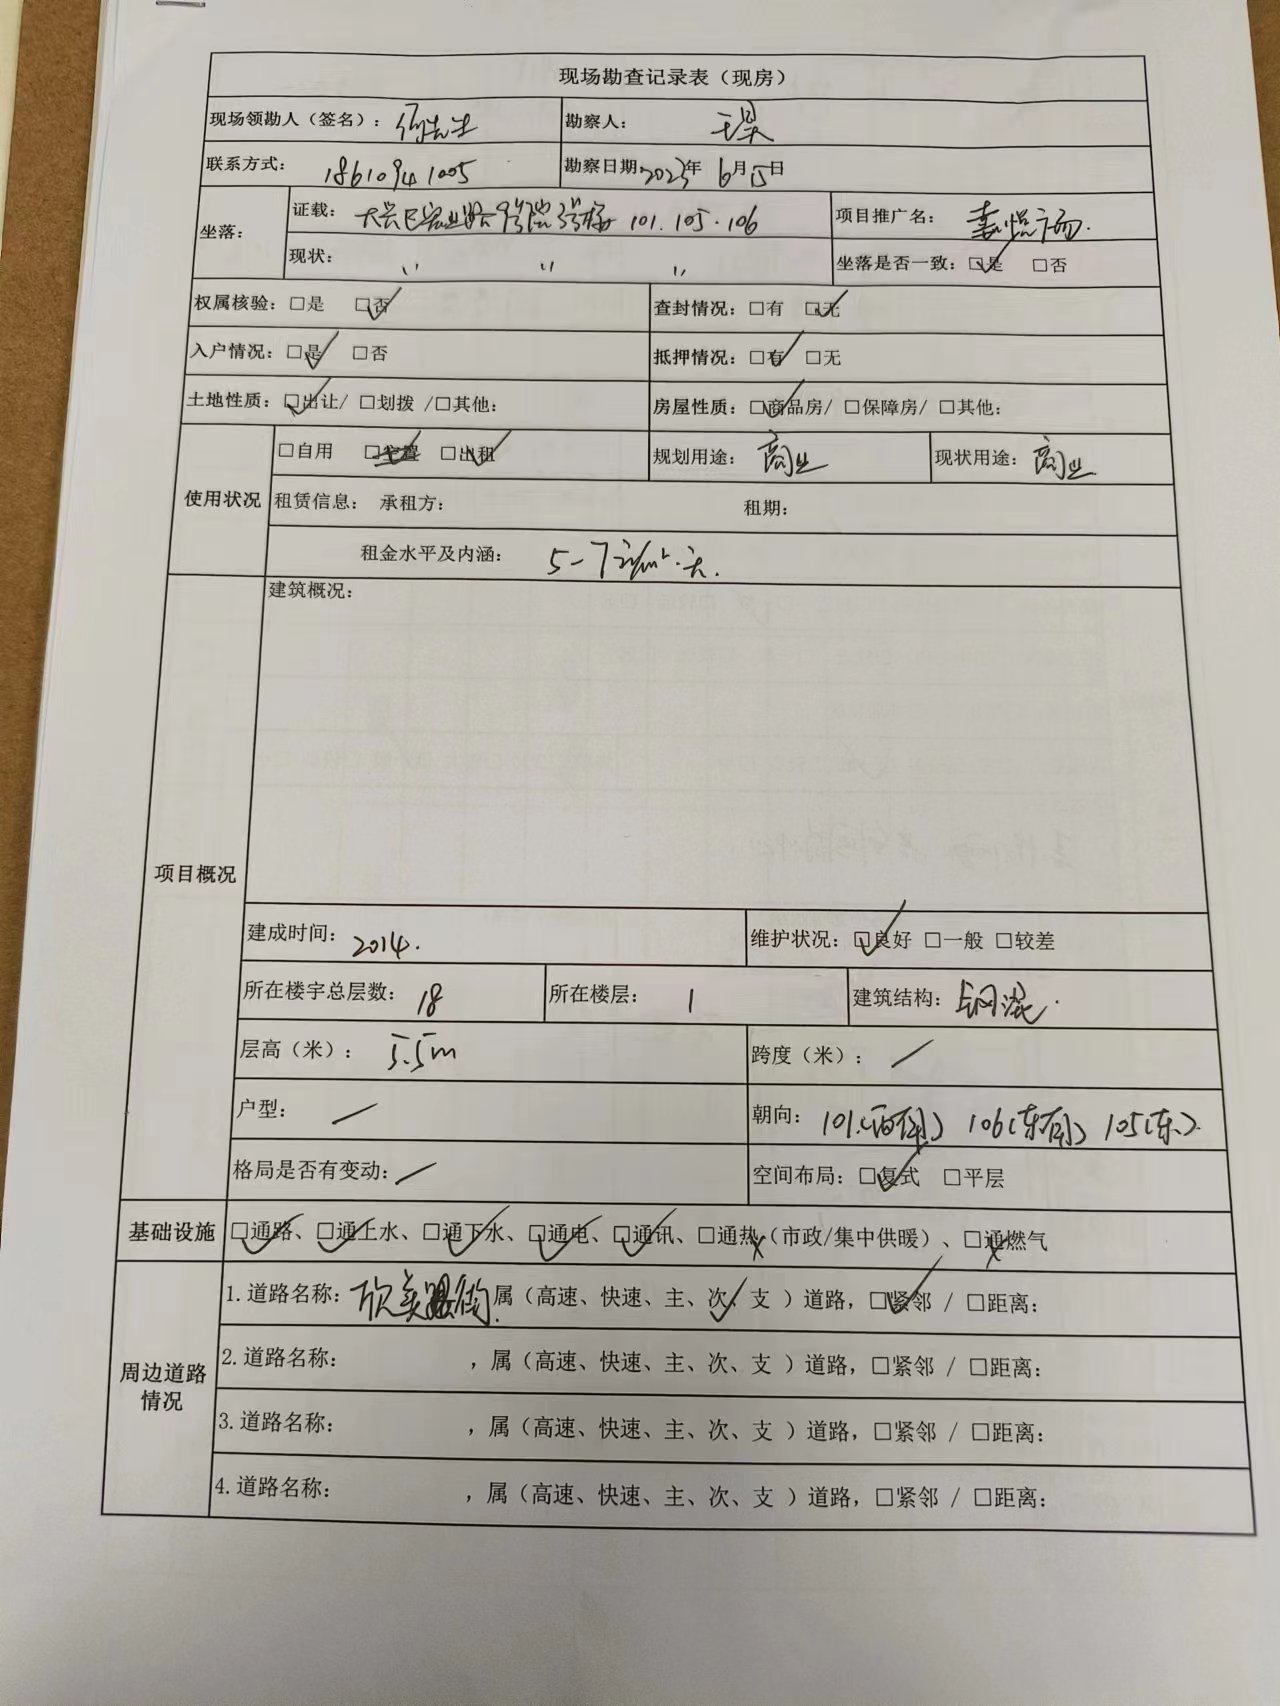 现场勘查记录表（现房）
现场领勘人（签名）：何先生 勘察人：
联系方式：18610941005 勘察日期 2023年 6月15日
坐落： 证载：大兴区宏业路9号院3号楼 101.105.106 项目推广名：嘉悦广场.
现状： 〃 〃 〃 坐落是否一致：☑是 □否
权属核验：□是 ☑否 查封情况：□有 ☑无
入户情况：☑是 □否 抵押情况：☑有 □无
土地性质：☑出让/ □划拨 /□其他： 房屋性质：☑商品房/ □保障房/ □其他：
使用状况 □自用 □空置 ☑出租 规划用途：商业 现状用途：商业
租赁信息： 承租方： 租期：
租金水平及内涵：5-7元/m²·天.
项目概况 建筑概况：
建成时间：2014. 维护状况：☑良好 □一般 □较差
所在楼宇总层数：18 所在楼层：1 建筑结构：钢混.
层高（米）：5.5m 跨度（米）：/
户型：/ 朝向：101.(西南) 106(东南) 105(东).
格局是否有变动：/ 空间布局：☑复式 □平层
基础设施 ☑通路、☑通上水、☑通下水、☑通电、☑通讯、□通热（市政/集中供暖）、□通燃气
周边道路情况 1.道路名称：欣美街.属（高速、快速、主、次、支 ）道路，☑紧邻 / □距离：
2.道路名称： ，属（高速、快速、主、次、支 ）道路，□紧邻 / □距离：
3.道路名称： ，属（高速、快速、主、次、支 ）道路，□紧邻 / □距离：
4.道路名称： ，属（高速、快速、主、次、支 ）道路，□紧邻 / □距离：